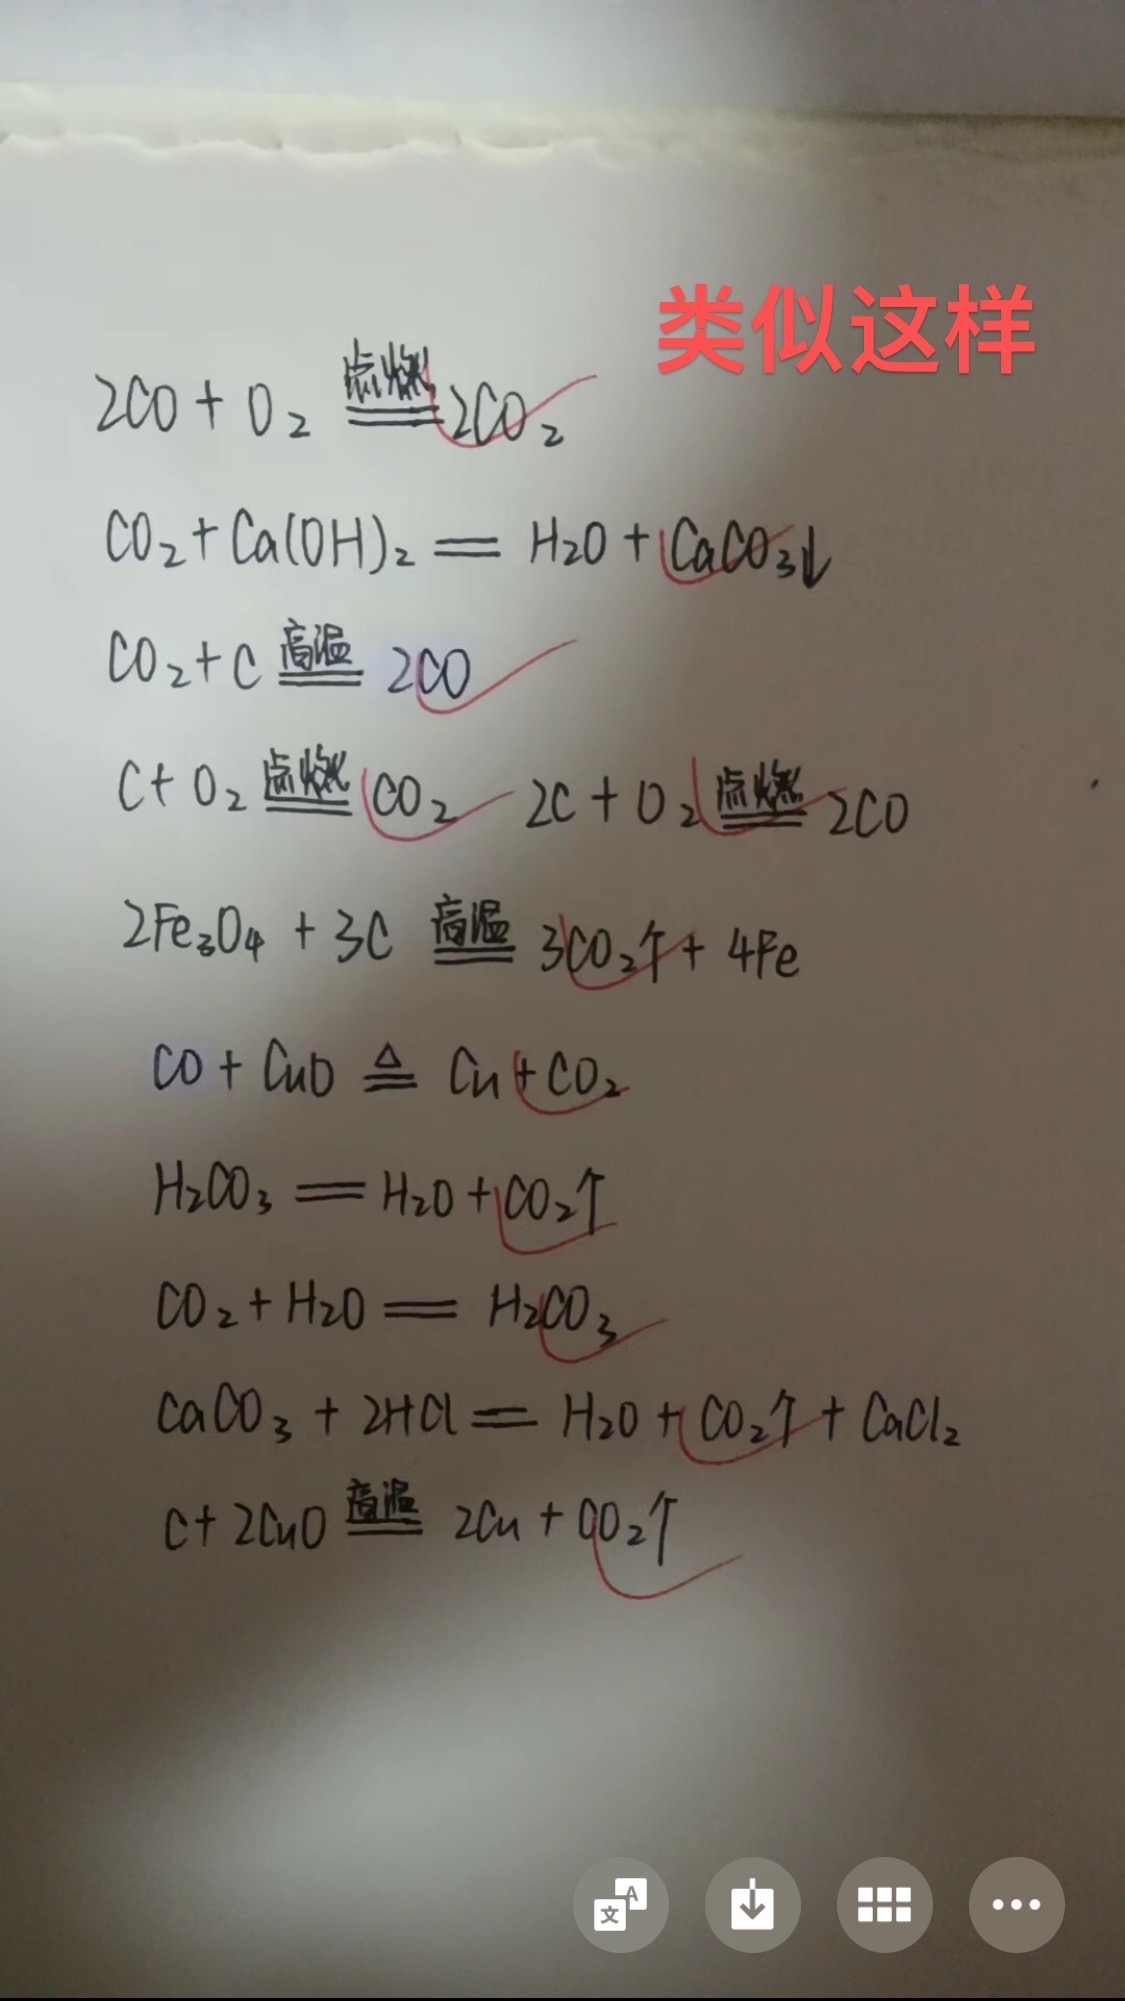 类似这样
2CO + O₂ 点燃 ═ 2CO₂
CO₂ + Ca(OH)₂ ═ H₂O + CaCO₃↓
CO₂ + C 高温 ═ 2CO
C + O₂ 点燃 ═ CO₂ 2C + O₂ 点燃 ═ 2CO
2Fe₃O₄ + 3C 高温 ═ 3CO₂↑ + 4Fe
CO + CuO △ ═ Cu + CO₂
H₂CO₃ ═ H₂O + CO₂↑
CO₂ + H₂O ═ H₂CO₃
CaCO₃ + 2HCl ═ H₂O + CO₂↑ + CaCl₂
C + 2CuO 高温 ═ 2Cu + CO₂↑
文 A